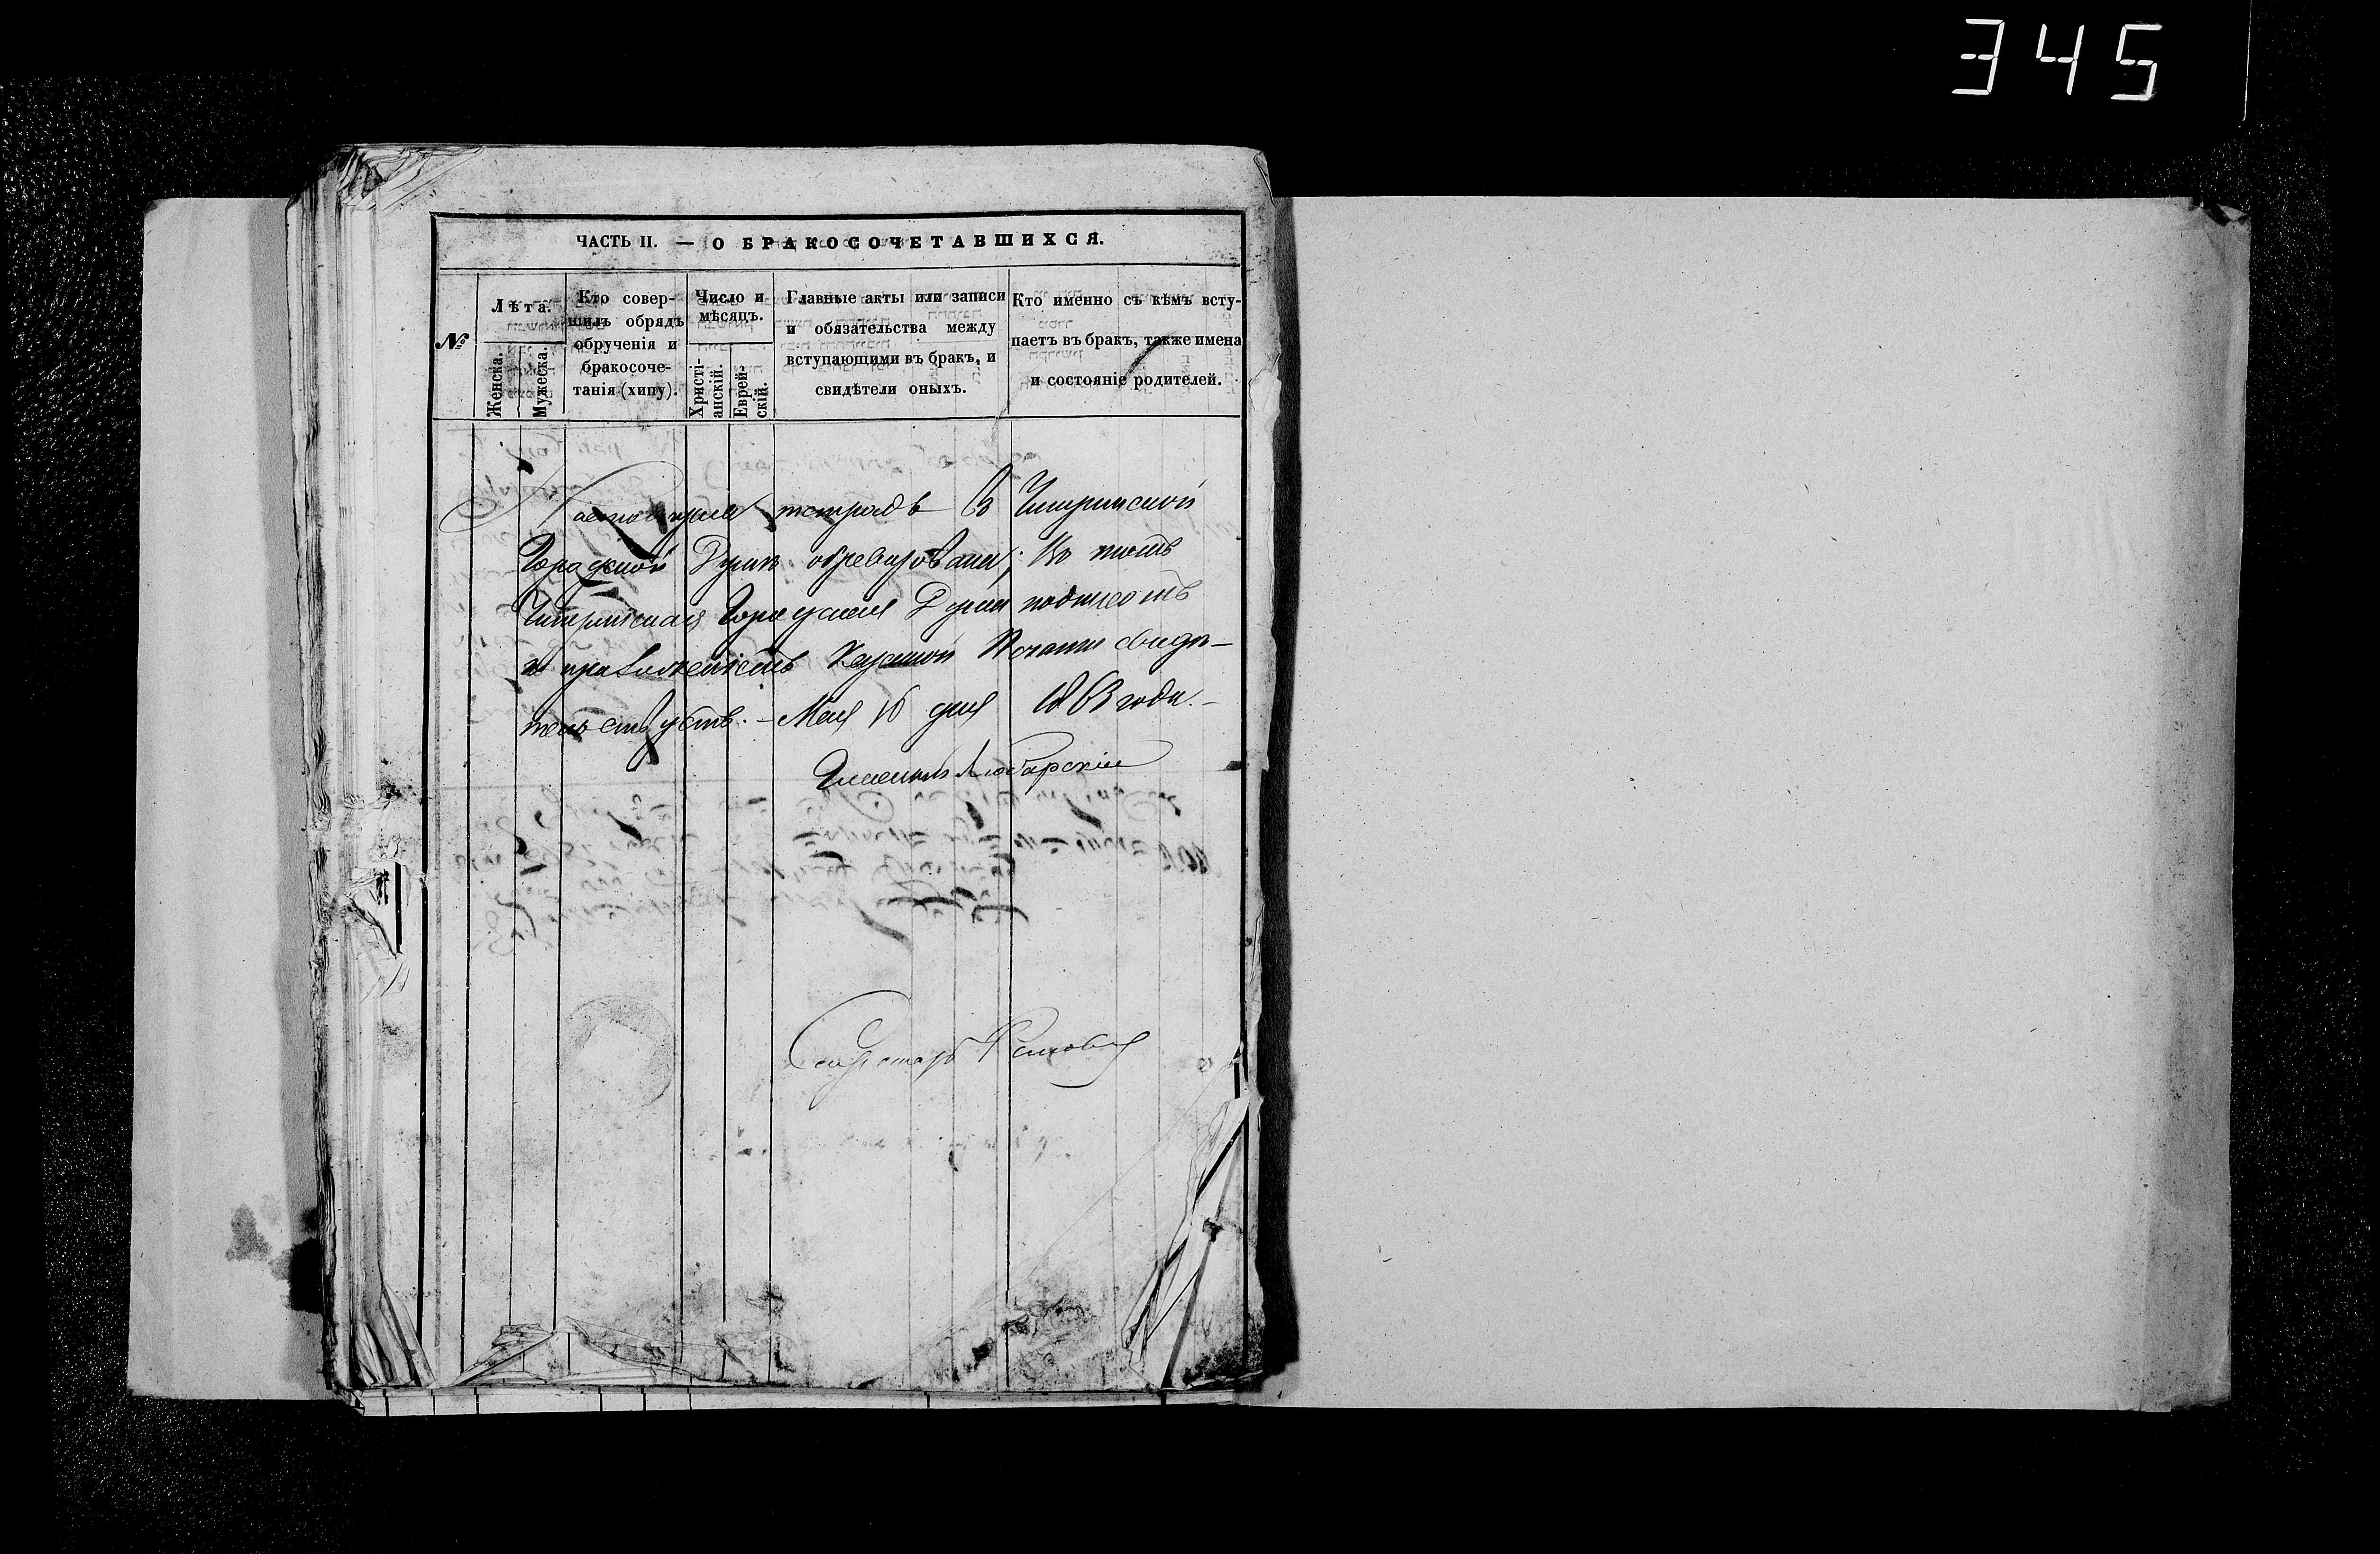 345
ЧАСТЬ II. — О БРАКОСОЧЕТАВШИХСЯ.
№
Лѣта.
Женска.
Мужеска.
Кто совер-
шилъ обрядъ
обрученія и
бракосоче-
танія (хипу).
Число и
мѣсяцъ.
Христі-
анскій.
Еврей-
скій.
Главные акты или записи
и обязательства между
вступающими въ бракъ, и
свидѣтели оныхъ.
Кто именно съ кѣмъ всту-
паетъ въ бракъ, также имена
и состояніе родителей.
тетрадь в Чигиринской
Городской Думѣ обревизована; въ томъ
Чигиринская Городская Дума подписомъ
и приложеніемъ Казенной Печати свидѣ-
тельствуетъ. — Мая 16 дня 1863 года. —
Гласный Любарскій
Секретарь